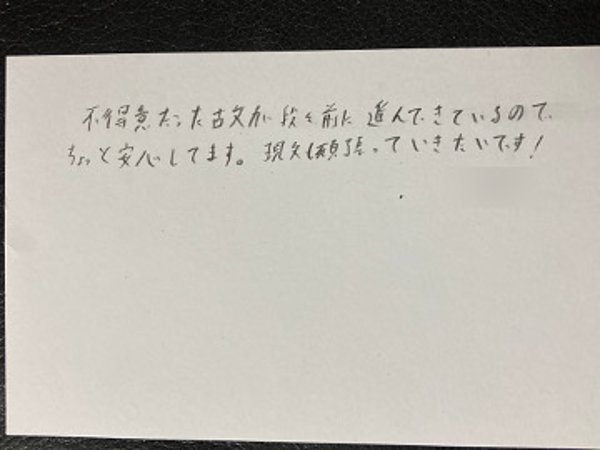 不得意だった古文が段々前に進んできているので
ちょっと安心してます。現文も頑張っていきたいです!